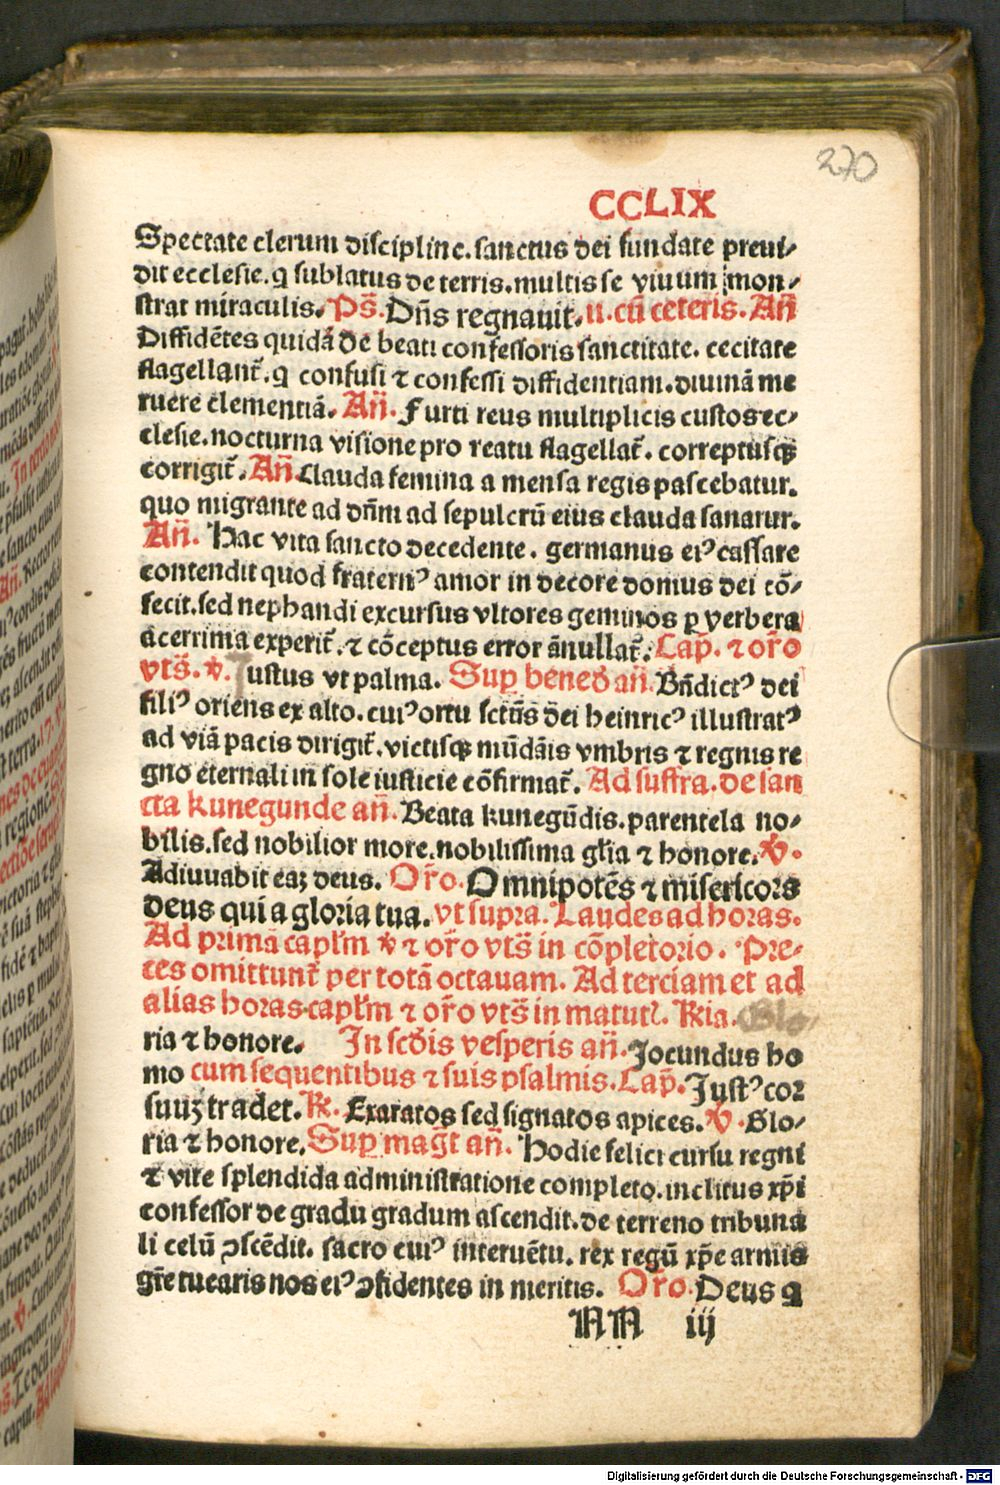 270
CCLIX
Spectate clerum discipline. sanctus dei fundate preui-
dit ecclesie. q sublatus de terris. multis se viuum mon-
strat miraculis. Ps̄. Dn̄s regnauit. u. cū ceteris. An̄
Diffidētes quidā de beati confessoris sanctitate. cecitate
flagellant᷑. q confusi ⁊ confessi diffidentiam. diuinā me
ruere clementiā. An̄. Furti reus multiplicis custos ec-
clesie. nocturna visione pro reatu flagellat᷑. correptusqꝫ
corrigit᷑. An̄. Clauda femina a mensa regis pascebatur.
quo migrante ad dn̄m ad sepulcrū eius clauda sanatur.
An̄. Hac vita sancto decedente. germanus eiꝰ cassare
contendit quod fraternꝰ amor in decore domus dei cō-
fecit. sed nephandi excursus vltores geminos ꝑ verbera
acerrima experit᷑. ⁊ cōceptus error ānullat᷑. Cap̄. ⁊ or̄o
vts̄. ℣. Justus vt palma. Suꝑ bened̄ an̄. Bn̄dictꝰ dei
filiꝰ oriens ex alto. cuiꝰ ortu sctūs dei heinricꝰ illustratꝰ
ad viā pacis dirigit᷑. victisqꝫ mūdāis vmbris ⁊ regnis re
gno eternali in sole iusticie cōfirmat᷑. Ad suffra. de san
cta kunegunde an̄. Beata kunegūdis. parentela no-
bilis. sed nobilior more. nobilissima gl̄ia ⁊ honore. ℣.
Adiuuabit eaꝫ deus. Or̄o. Omnipotēs ⁊ misericors
deus qui a gloria tua. vt supra. Laudes ad horas.
Ad primā capl̄m ℣ ⁊ or̄o vts̄ in cōpletorio. Pre-
ces omittunt᷑ per totā octauam. Ad terciam et ad
alias horas capl̄m ⁊ or̄o vts̄ in matutꝭ. ℟ia. Glo-
ria ⁊ honore. In scd̄is vesperis an̄. Jocundus ho
mo cum sequentibus ⁊ suis psalmis. Cap̄. Justꝰ cor
suuꝫ tradet. ℟. Exaratos sed signatos apices. ℣. Glo-
ria ⁊ honore. Suꝑ maḡt an̄. Hodie felici cursu regni
⁊ vite splendida administratione completo. inclitus xp̄i
confessor de gradu gradum ascendit. de terreno tribuna
li celū ꝯscēdit. sacro cuiꝰ interuētu. rex regū xp̄e armis
gr̄e tuearis nos eiꝰ ꝯfidentes in meritis. Or̄o. Deus q
NN iij
Digitalisierung gefördert durch die Deutsche Forschungsgemeinschaft - DFG